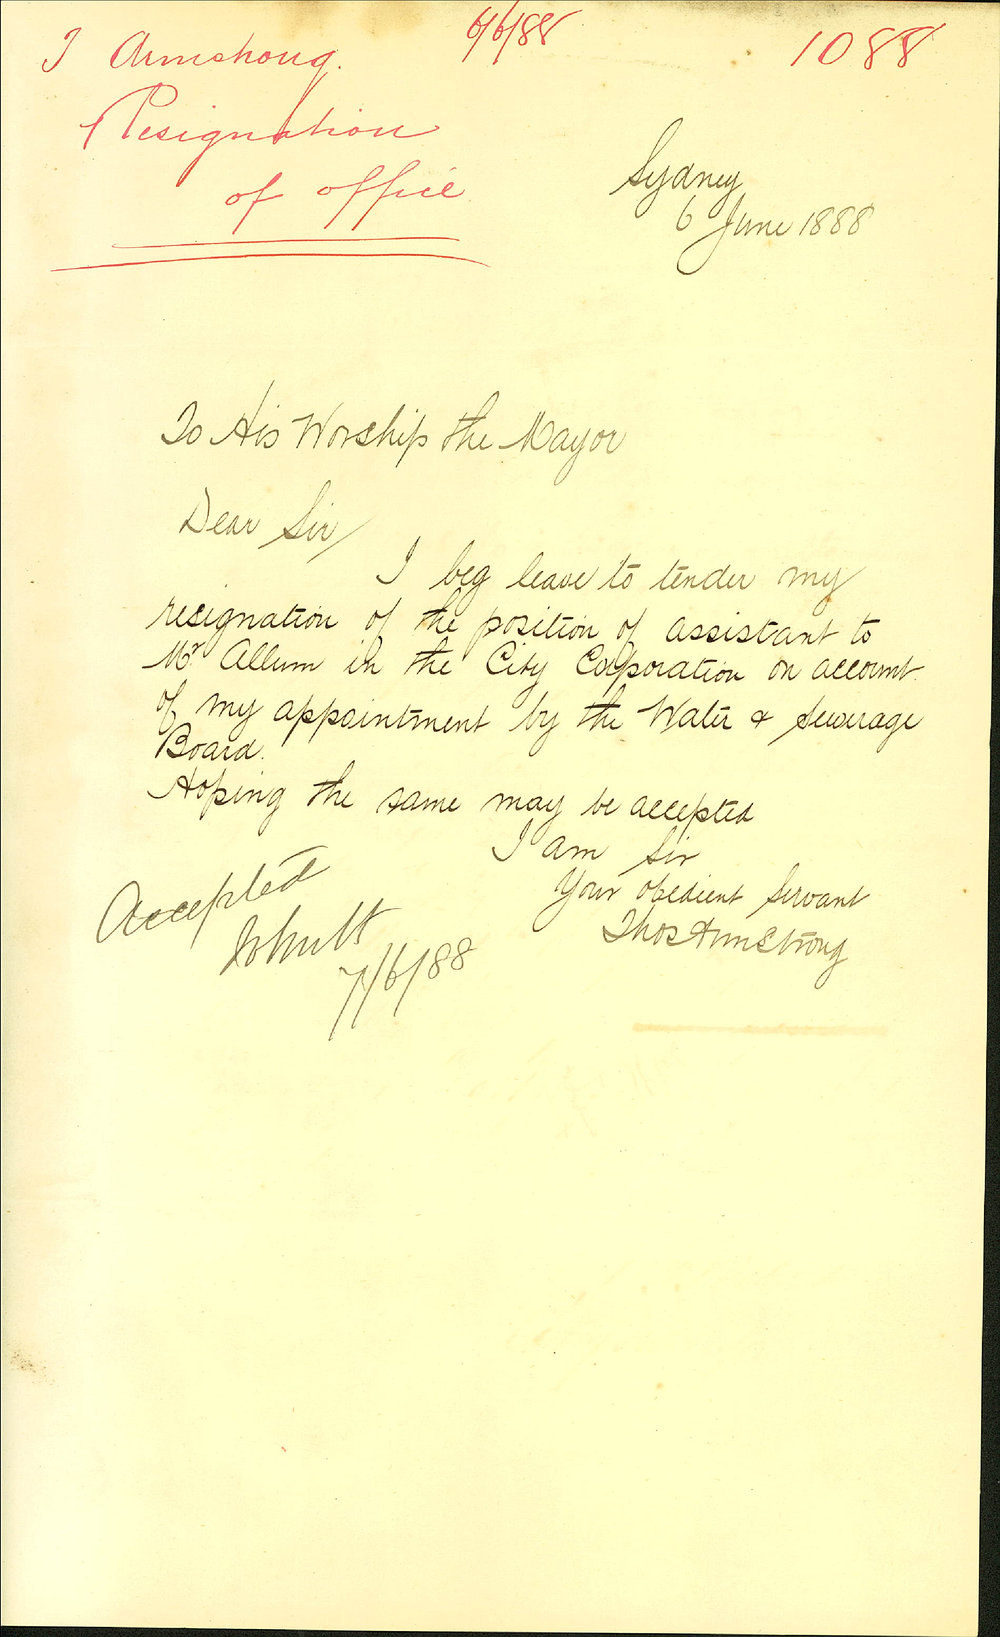 T Armstrong.
6/6/88
1088
Resignation
of office
Sydney
6 June 1888
To His Worship the Mayor
Dear Sir/
I beg leave to tender my
resignation of the position of assistant to
Mr Allum in the City Corporation on account
of my appointment by the Water & Sewerage
Board.
Hoping the same may be accepted
I am Sir
Your obedient Servant
Thos Armstrong
Accepted
7/6/88